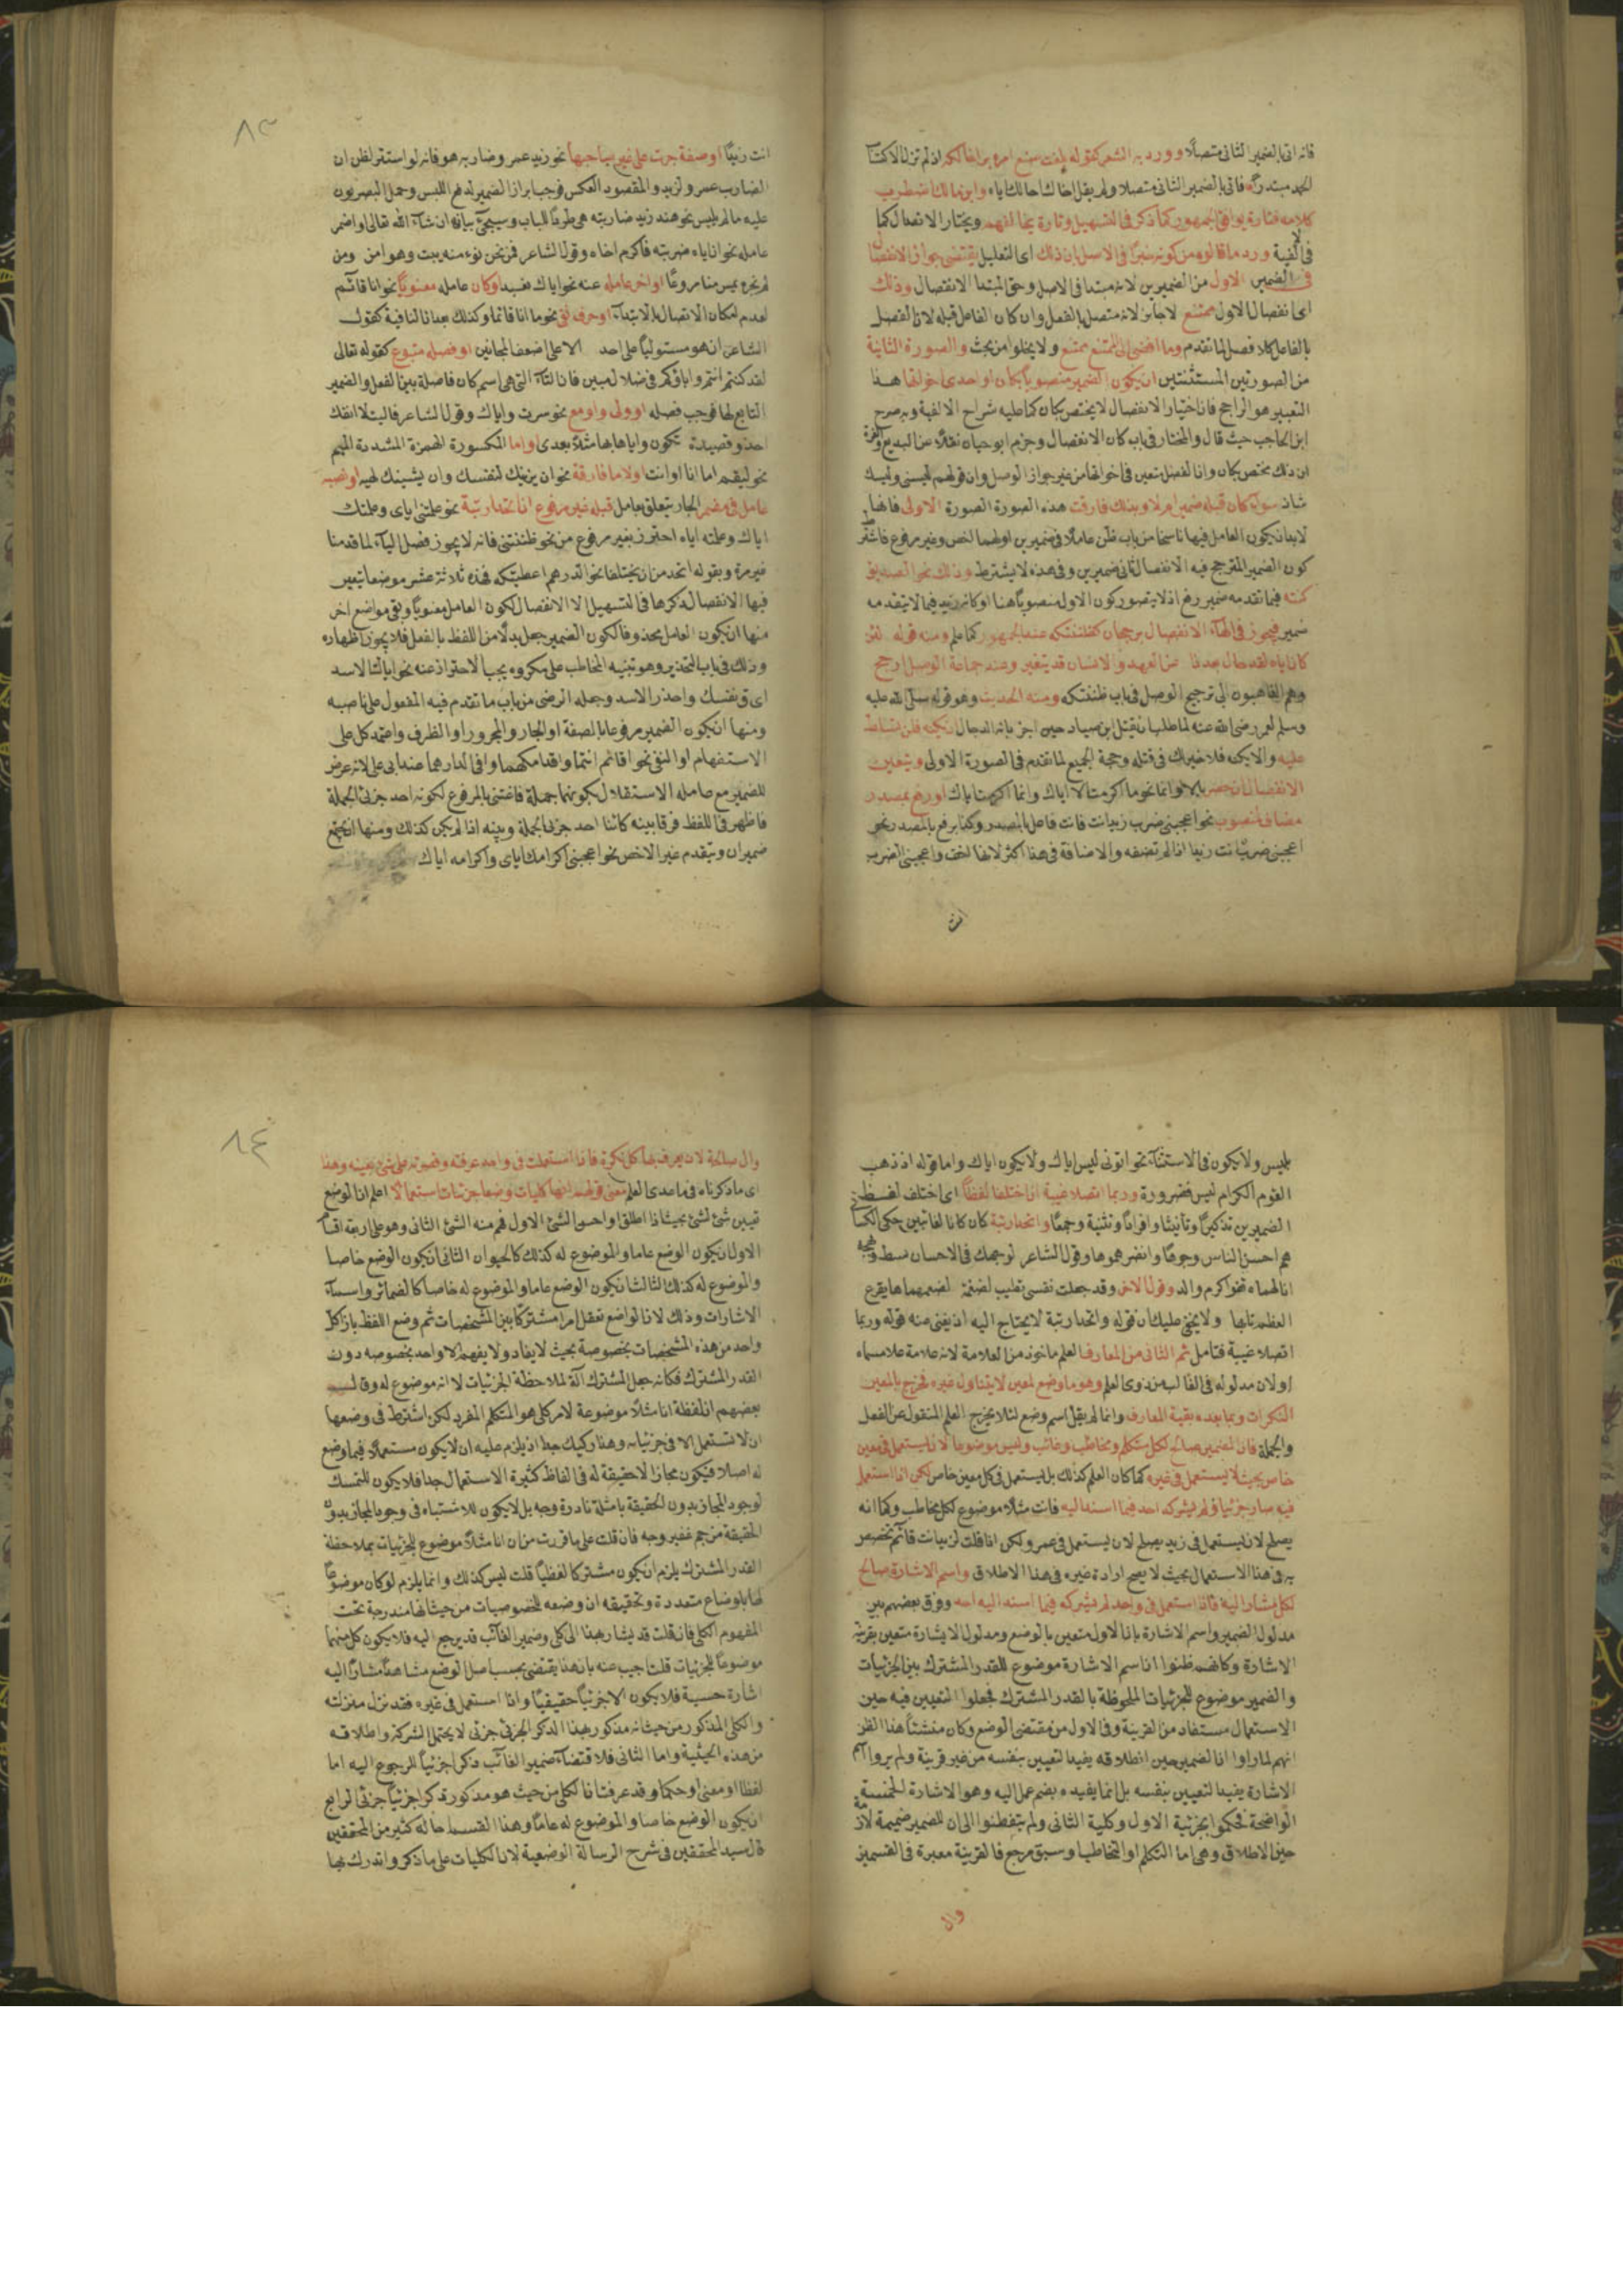 فانه اتى بالضمير الثانى متصلا وورد به الشعر كقوله بلغت صنع امرء بر اخالكه اذ لم تزل لاكتساب
الحمد مبتدرا فاتى بالضمير الثانى متصلا ولم يقل اخالك اياه وابن مالك اضطرب
كلامه فتارة يوافق الجمهور كما ذكر فى التسهيل وتارة يخالفهم ويختار الاتصال كما
فى الالفية ورد ما قالوه من كونه خبرا فى الاصل ان ذلك اى التعليل يقتضى جواز الانفصال
فى الضمير الاول من الضميرين لانه مبتدا فى الاصل وحق المبتدا الانفصال وذلك
اى انفصال الاول ممتنع لا جائز لانه متصل بالفعل وان كان الفاعل قبله لان الفصل
بالفاعل كلا فصل لما تقدم وما افضى الى الممتنع ممتنع ولا يخلوا من بحث والصورة الثانية
من الصورتين المستثنتين ان يكون الضمير منصوبا بكان او احدى اخواتها هذا
التعبير هو الراجح فان اختيار الانفصال لا يختص بكان كما عليه شراح الالفية وبه صرح
ابن الحاجب حيث قال والمختار فى باب كان الانفصال وجزم ابو حيان نقلا عن البديع
ان ذلك مختص بكان وان الفصل متعين فى اخواتها من غير جواز الوصل وان قولهم ليسنى وليسك
شاذ سواء كان قبله ضمير ام لا وبذلك فارقت هذه الصورة الصورة الاولى فانها
لابد ان يكون العامل فيها ناسخا من باب ظن عاملا فى ضميرين اولهما اخص وغير مرفوع
كون الضمير المترجح فيه الانفصال ثانى ضميرين وفى هذه لا يشترط وذلك نحو الصديق
كنته فيما تقدمه ضمير رفع اذ لا يتصور كون الاول منصوبا هنا او كانه زيد فيما لا يتقدمه
ضمير فيجوز فى الهاء الانفصال برجحان كظننتكه عند الجمهور كما علم ومنه قوله لئن
كان اياه لقد حال بعدنا عن العهد والانسان قد يتغير وعند جماعة الوصل ارجح
وهم الذاهبون الى ترجيح الوصل فى باب ظننتكه ومنه الحديث وهو قوله صلى الله عليه
وسلم لعمر رضى الله عنه لما طلب ان يقتل ابن صياد حين اخبر بانه الدجال ان يكنه فلن تسلط
عليه والا يكنه فلا خير لك فى قتله وحجة الجميع لما تقدم فى الصورة الاولى ويتعين
الانفصال ان حصر بالا او انما نحو ما اكرمت الا اياك وانما اكرمت اياك او رفع بمصدر
مضاف لمنصوب نحو اعجبنى ضرب زيد انت فانت فاعل بالمصدر وكذا يرفع بالمصدر نحو
اعجبنى ضرب انت زيدا اذا لم تضفه والاضافة فى هذا اكثر لانها اخف واعجبنى الضرب
انت
٨٣
انت زيدا او صفة جرت على غير صاحبها نحو زيد عمرو ضاربه هو فانه لو استتر لظن ان
الضارب عمرو لزيد والمقصود العكس فوجب ابراز الضمير لدفع اللبس وحمل البصريون
عليه ما لم يلبس نحو هند زيد ضاربته هى طردا للباب وسيجئ بيانه ان شاء الله تعالى او اضمر
عامله نحو انا اياه ضربته فاكرم اخاه وقول الشاعر فمن نحن نؤمنه يبت وهو امن ومن
لم نجره يمس منا مروعا او اخر عامله عنه نحو اياك نعبد او كان عامله معنويا نحو انا قائم
لعدم امكان الاتصال بالابتداء او حرف نفى نحو ما انا قائما وكذلك بعد ان النافية كقول
الشاعر ان هو مستوليا على احد الا على اضعف المجانين او فصله متبوع كقوله تعالى
لقد كنتم انتم واباؤكم فى ضلال مبين فان التاء التى هى اسم كان فاصلة بين الفعل والضمير
التابع لها فوجب فصله او ولى واو مع نحو سرت واياك وقول الشاعر فاليت لا انفك
احذو قصيدة تكون واياها بها مثلا بعدى او اما المكسورة الهمزة المشددة الميم
نحو ليقم اما انا او انت او لاما فارقة نحو ان يزينك لنفسك وان يشينك لهيه او نصبه
عامل فى مضمر الجار يتعلق بعامل قبله غير مرفوع ان اتحدا رتبة نحو علمتنى اياى وعلمتك
اياك وعلمته اياه احترز بغير مرفوع من نحو ظننتنى فانه لا يجوز فصل الياء لما قدمنا
غير مرة وبقوله اتحد من ان يختلفا نحو الدرهم اعطيتكه فهذه ثلاثة عشر موضعا يتعين
فيها الانفصال ذكرها فى التسهيل الا الانفصال لكون العامل معنويا وبقى مواضع اخر
منها ان يكون العامل محذوفا لكون الضمير جعل بدلا من اللفظ بالفعل فلا يجوز اظهاره
وذلك فى باب التحذير وهو تنبيه المخاطب على مكروه يجب الاحتراز عنه نحو اياك الاسد
اى ق نفسك واحذر الاسد وجعله الرضى من باب ما تقدم فيه المفعول على ناصبه
ومنها ان يكون الضمير مرفوعا بالصفة او الجار والمجرور او الظرف واعتمد كل على
الاستفهام او النفى نحو اقائم انتما واقدامكهما وافى الدار هما عند ابى على لانه عرض
للضمير مع عامله الاستقلال بكونهما جملة فاغتنى بالمرفوع لكونه احد جزئى الجملة
فاظهر فى اللفظ فرقا بينه كائنا احد جزئى الجملة وبينه اذا لم يكن كذلك ومنها ان يجتمع
ضميران ويتقدم غير الاخص نحو اعجبنى اكرامك اياى واكرامه اياك
بليس ولا يكون فى الاستثناء نحو اتونى ليس اياك ولا يكون اياك واما قوله اذ ذهب
القوم الكرام ليس فضرورة وربما اتصلا غيبة ان اختلفا لفظا اى اختلف لفظ
الضميرين تذكيرا وتأنيثا وافرادا وتثنية وجمعا واتحدا رتبة كان كانا لغائبين حكى الكسائى
هم احسن الناس وجوها وانضرهموها وقول الشاعر لوجهك فى الاحسان بسط وبهجة
انالهماه قفو اكرم والد وقول الاخر وقد جعلت نفسى تطيب لضغمة لضغمهماها يقرع
العظم نابها ولا يخفى عليك ان قوله واتحدا رتبة لا يحتاج اليه اذ يغنى عنه قوله وربما
اتصلا غيبة فتامل ثم الثانى من المعارف العلم ماخوذ من العلامة لانه علامة على مسماه
او لان مدلوله فى الغالب من ذوى العلم وهو ما وضع لمعين لا يتناول غيره فخرج بالمعين
النكرات وبما بعده بقية المعارف وانما لم يقل اسم وضع لئلا يخرج العلم المنقول عن الفعل
والجملة فان الضمير صالح لكل متكلم ومخاطب وغائب وليس موضوعا لان يستعمل فى معين
خاص بحيث لا يستعمل فى غيره كما كان العلم كذلك بل يستعمل فى كل معين خاص لكن اذا استعمل
فيه صار جزئيا ولم يشركه احد فيما اسند اليه فانت مثلا موضوع لكل مخاطب وكما انه
يصلح لان يستعمل فى زيد يصلح لان يستعمل فى عمرو لكن اذا قلت لزيد انت قائم تخصص
به فى هذا الاستعمال بحيث لا يصح ارادة غيره فى هذا الاطلاق واسم الاشارة صالح
لكل مشار اليه فاذا استعمل فى واحد لم يشركه فيما اسند اليه احد وفرق بعضهم بين
مدلول الضمير واسم الاشارة بان الاول متعين بالوضع ومدلول الاشارة متعين بقرينة
الاشارة وكانهم ظنوا ان اسم الاشارة موضوع للقدر المشترك بين الجزئيات
والضمير موضوع للجزئيات الملحوظة بالقدر المشترك فجعلوا التعيين فيه حين
الاستعمال مستفاد من القرينة وفى الاول من مقتضى الوضع وكان منشئا هذا الظن
انهم لما راوا ان الضمير حين اطلاقه يفيد التعيين بنفسه من غير قرينة ولم يروا اسم
الاشارة يفيد التعيين بنفسه بل انما يفيده بضم عمل اليه وهو الاشارة الحسية
الواضحة فحكموا بجزئية الاول وكلية الثانى ولم يتفطنوا الى ان للضمير ضميمة لازمة
حين الاطلاق وهى اما التكلم او التخاطب او سبق مرجع فالقرينة معبرة فى القسمين
وال
٨٤
وال صالحة لان يعرف بها كل نكرة فاذا استعملت فى واحد عرفته وقصرته على شئ بعينه وهذا
اى ما ذكرناه فى ما عدى العلم معنى قولهم انها كليات وضعا جزئيات استعمالا اعلم ان الوضع
تعيين شئ لشئ بحيث اذا اطلق او احس الشئ الاول فهم منه الشئ الثانى وهو على اربعة اقسام
الاول ان يكون الوضع عاما والموضوع له كذلك كالحيوان الثانى ان يكون الوضع خاصا
والموضوع له كذلك الثالث ان يكون الوضع عاما والموضوع له خاصا كالضمائر واسماء
الاشارات وذلك لان الواضع تعقل امرا مشتركا بين المشخصات ثم وضع اللفظ بازاء كل
واحد من هذه المشخصات بخصوصه بحيث لا يفاد ولا يفهم الا واحد بخصوصه دون
القدر المشترك فكانه جعل المشترك آلة لملاحظة الجزئيات لا انه موضوع له وقال
بعضهم ان لفظة انا مثلا موضوعة لامر كلى هو المتكلم المفرد لكن اشترط فى وضعها
ان لا تستعمل الا فى جزئياته وهذا ركيك جدا اذ يلزم عليه ان لا يكون مستعملا فيما وضع
له اصلا فيكون مجازا لا حقيقة له فى الفاظ كثيرة الاستعمال جدا فلا يكون للتمسك
لوجود المجاز بدون الحقيقة بامثلة نادرة وجه بل لا يكون للاشتباه فى وجود المجاز بدون
الحقيقة من جم غفير وجه فان قلت على ما قررت من ان انا مثلا موضوع للجزئيات بملاحظة
القدر المشترك يلزم ان يكون مشتركا لفظيا قلت ليس كذلك وانما يلزم لو كان موضوعا
لها باوضاع متعددة وتحقيقه ان وضعه للخصوصيات من حيث انها مندرجة تحت
المفهوم الكلى فان قلت قد يشار بهذا الى كلى وضمير الغائب قد يرجع اليه فلا يكون كل منهما
موضوعا للجزئيات قلت اجيب عنه بان هذا يقتضى بحسب اصل الوضع مشاهدا مشارا اليه
اشارة حسية فلا يكون الا جزئيا حقيقيا واذا استعمل فى غيره فقد نزل منزلته
والكلى المذكور من حيث انه مذكور بهذا الذكر الجزئى جزئى لا يحتمل الشركة واطلاقه
من هذه الحيثية واما الثانى فلاقتضاء ضمير الغائب ذكرا جزئيا للرجوع اليه اما
لفظا او معنى او حكما وقد عرفت ان الكلى من حيث هو مذكور ذكرا جزئيا جزئى الرابع
ان يكون الوضع خاصا والموضوع له عاما وهذا القسم احاله كثير من المحققين
قال سيد المحققين فى شرح الرسالة الوضعية لان الكليات على ما ذكر واندرك بها